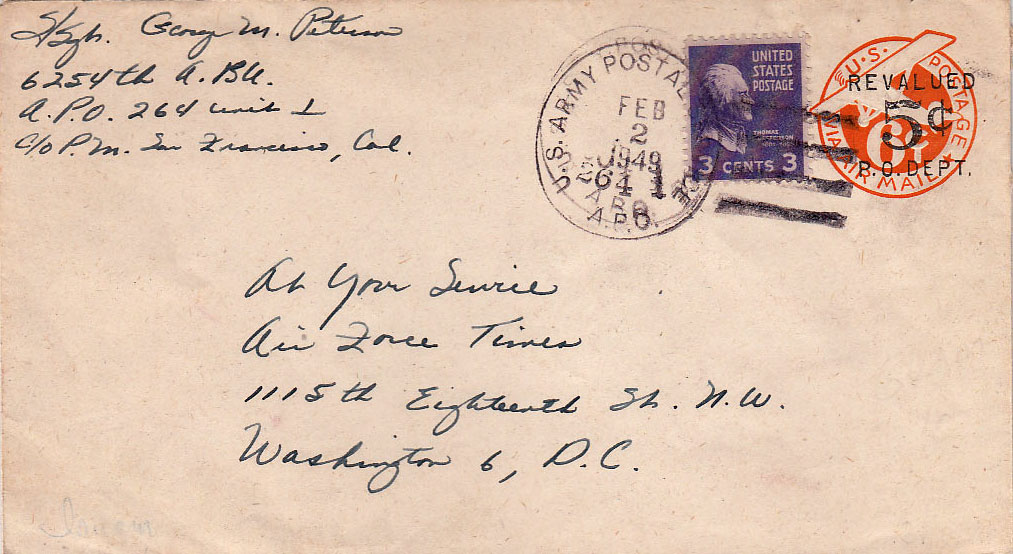 S/Sgt. George M. Peterson
6254th A.B.U.
A.P.O. 264 unit 1
c/o P.M. San Francisco, Cal.
U.S. ARMY POSTAL
FEB
2
1949
264 1
A.P.O.
UNITED
STATES
POSTAGE
THOMAS
JEFFERSON
3 CENTS 3
U.S. POSTAGE
REVALUED
5¢
6¢
P.O. DEPT.
VIA AIR MAIL
At Your Service
Air Force Times
1115th Eighteenth St. N.W.
Washington 6, D.C.